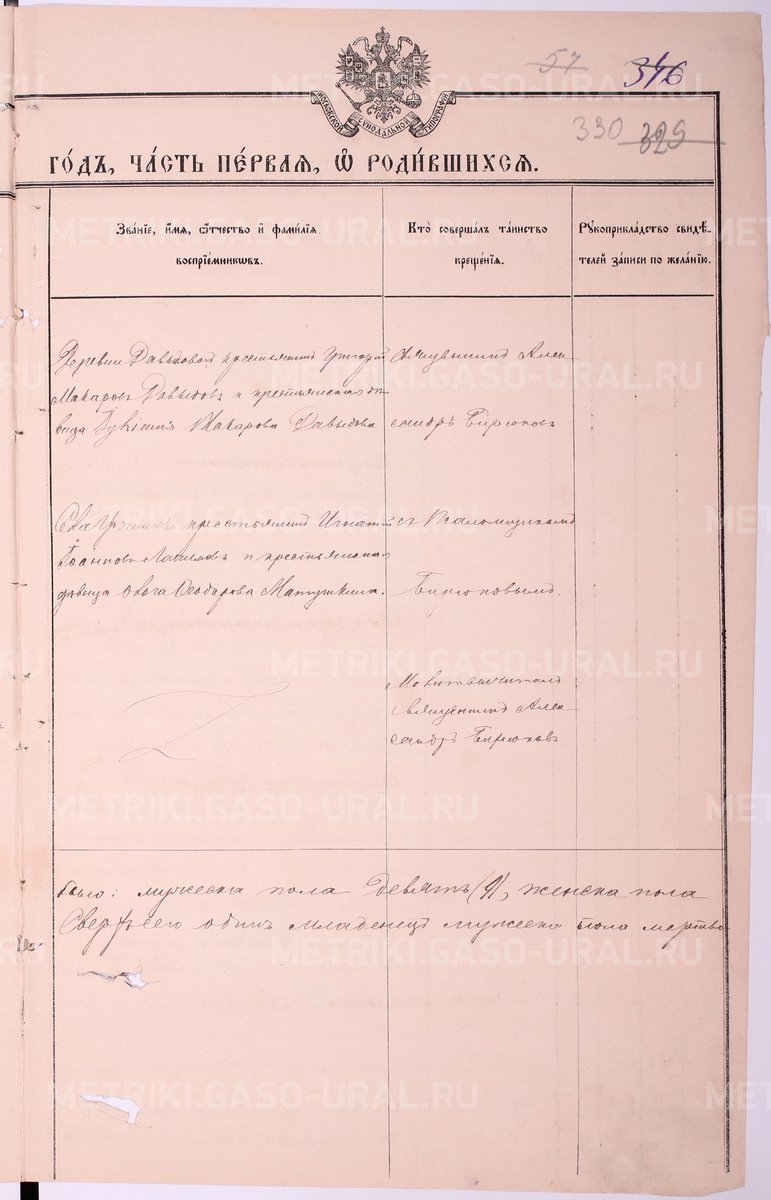 57 346
330 329
МОСКОВСКОЙ СѴНОДАЛЬНОЙ ТИПОГРАФІИ
го́дъ, ча́сть пе́рваѧ, ѡ҆ роди́вшихсѧ.
Зва́нїе, и҆́мѧ, ѻ҆́тчество и҆ фами́лїѧ
воспрїе́мникѡвъ.
Кто̀ соверша́лъ та́инство
креще́нїѧ.
Рꙋкоприкла́дство свидѣ́-
телей за́писи по жела́нїю.
Деревни Давыдовой крестьянинъ Григорій
Макаровъ Давыдовъ и крестьянская дѣ-
вица Макарова Давыдова
Священникъ Алек
сандръ Бирюковъ
крестьянинъ Игнатій
Іоанновъ и крестьянская
дѣвица Ѳеодорова Матушкина.
съ Псаломщикомъ
Бирюковымъ.
Молитвовалъ
Священникъ Алек
сандръ Бирюковъ
было: мужеска пола девять (9), женска пола
Сверхъ сего одинъ младенецъ мужеска пола мертво
METRIKI.GASO-URAL.RU